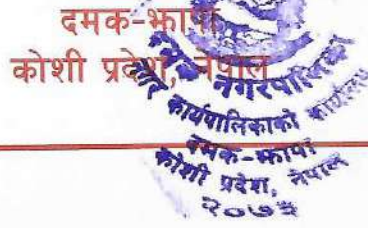 दमक-झापा
कोशी प्रदेश, नेपाल
दमक नगरपालिका
नगर कार्यपालिकाको कार्यालय
दमक-झापा
कोशी प्रदेश, नेपाल
२०७३